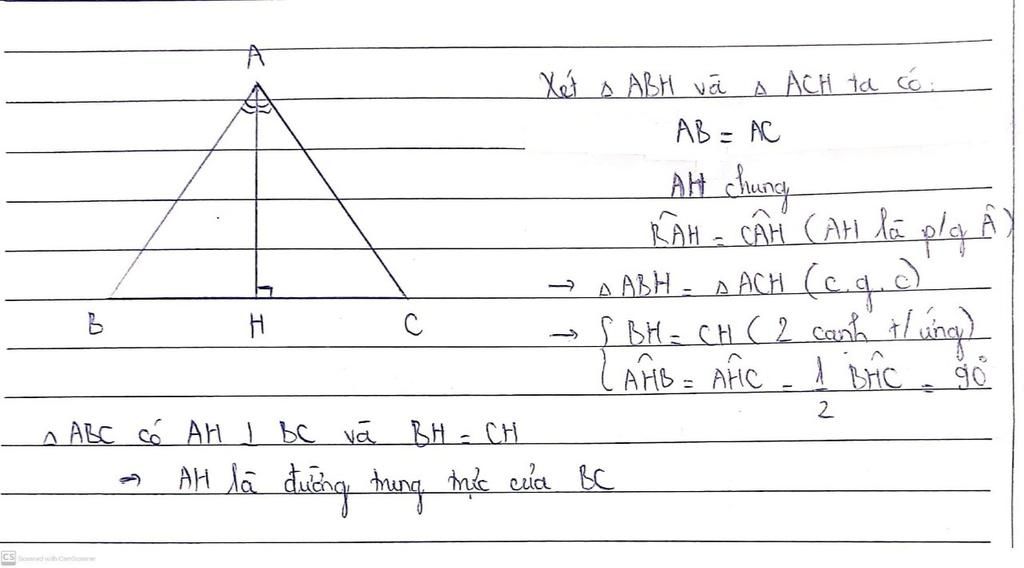 A
B
H
C
Xét △ ABH và △ ACH ta có:
AB = AC
AH chung
B̂AH = CÂH (AH là p/g Â)
→ △ ABH = △ ACH (c.g.c)
→ { BH = CH (2 cạnh t/ứng)
AĤB = AĤC = 1/2 BĤC = 90°
△ ABC có AH ⊥ BC và BH = CH
⇒ AH là đường trung trực của BC
CS Scanned with CamScanner